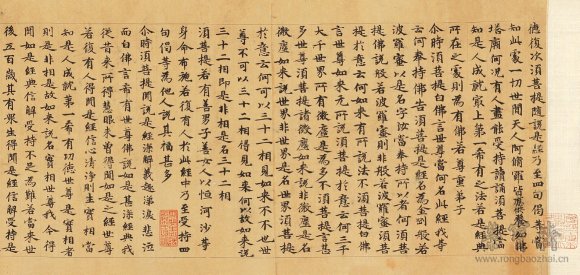 德復次須菩提隨說是經乃至四句偈等當
知此處一切世間天人阿脩羅皆應供養如佛
塔廟何況有人盡能受持讀誦須菩提當
知是人成就最上第一希有之法若是經典
所在之處則為有佛若尊重弟子
尒時須菩提白佛言世尊當何名此經我等
云何奉持佛告須菩提是經名為金剛般若
波羅蜜以是名字汝當奉持所以者何須菩
提佛說般若波羅蜜則非般若波羅蜜須菩
提於意云何如來有所說法不須菩提白佛
言世尊如來无所說須菩提於意云何三千
大千世界所有微塵是為多不須菩提言甚
多世尊須菩提諸微塵如來說非微塵是名
微塵如來說世界非世界是名世界須菩提
於意云何可以三十二相見如來不不也世
尊不可以三十二相得見如來何以故如來說
三十二相即是非相是名三十二相
須菩提若有善男子善女人以恒河沙等
身命布施若復有人於此經中乃至受持四
句偈等為他人說其福甚多
尒時須菩提聞說是經深解義趣涕淚悲泣
而白佛言希有世尊佛說如是甚深經典我
從昔來所得慧眼未曾得聞如是之經世尊
若復有人得聞是經信心清淨則生實相當
知是人成就第一希有功德世尊是實相者
則是非相是故如來說名實相世尊我今得
聞如是經典信解受持不足為難若當來世
後五百歲其有眾生得聞是經信解受持是
www.rongbaozhai.cn